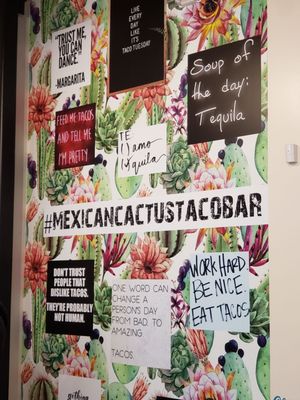 LIVE
EVERY
DAY
LIKE
IT'S
TACO TUESDAY
"TRUST ME,
YOU CAN
DANCE."
-MARGARITA
Soup of
the day:
Tequila
FEED ME TACOS
AND TELL ME
I'M PRETTY
TE
#MEXICANCACTUSTACOBAR
DON'T TRUST
PEOPLE THAT
DISLIKE TACOS.
THEY'RE PROBABLY
NOT HUMAN.
ONE WORD CAN
CHANGE A
PERSON'S DAY
FROM BAD TO
AMAZING
TACOS.
WORK HARD
BE NICE
EAT TACOS